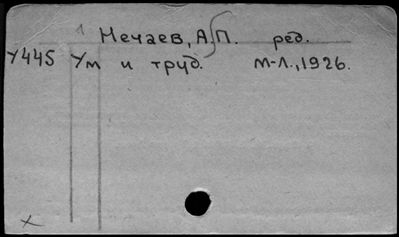 Нечаев, А.П. ред.
У445 Ум и труд. М-Л., 1926.